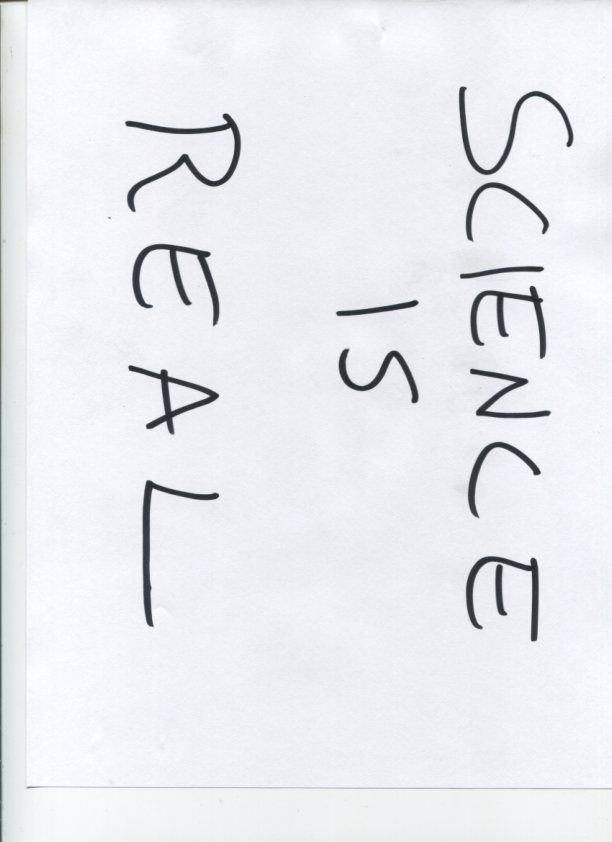 SCIENCE
IS
REAL